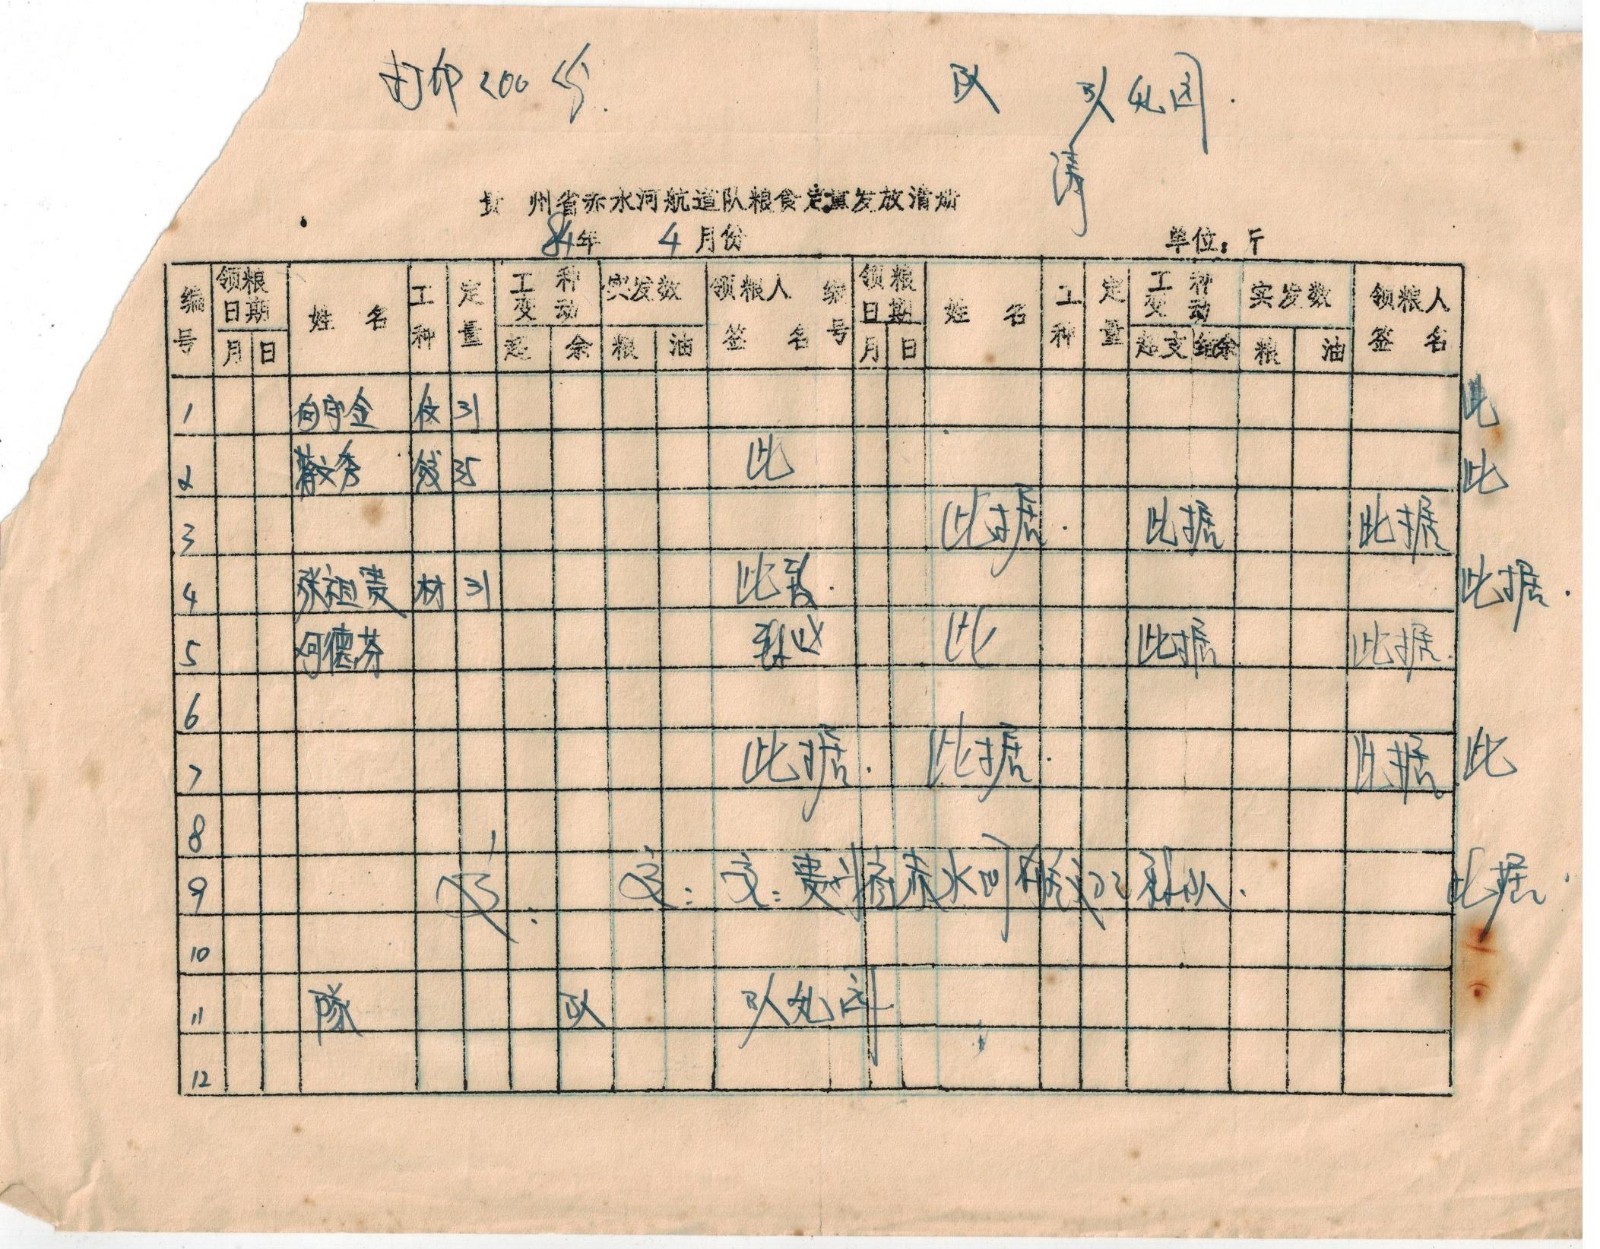 打印200份.
队 队处团.
清
贵州省赤水河航道队粮食定量发放清册
84年 4月份 单位:斤
编号 领粮日期 姓名 工种 定量 工种变动 实发数 领粮人签名 编号 领粮日期 姓名 工种 定量 工种变动 实发数 领粮人签名
月 日 超 余 粮 油 月 日 超支 结余 粮 油
1 向守金 伙 31 此
2 蒋文秀 线 35 此 此
3 此据. 此据 此据
4 张祖贵 材 31 此 此据.
5 何德芬 此 此据 此据.
6
7 此据. 此据. 此据 此
8
9 交: 交: 贵州省赤水河航道队. 此据.
10
11 隊 队 队处
12